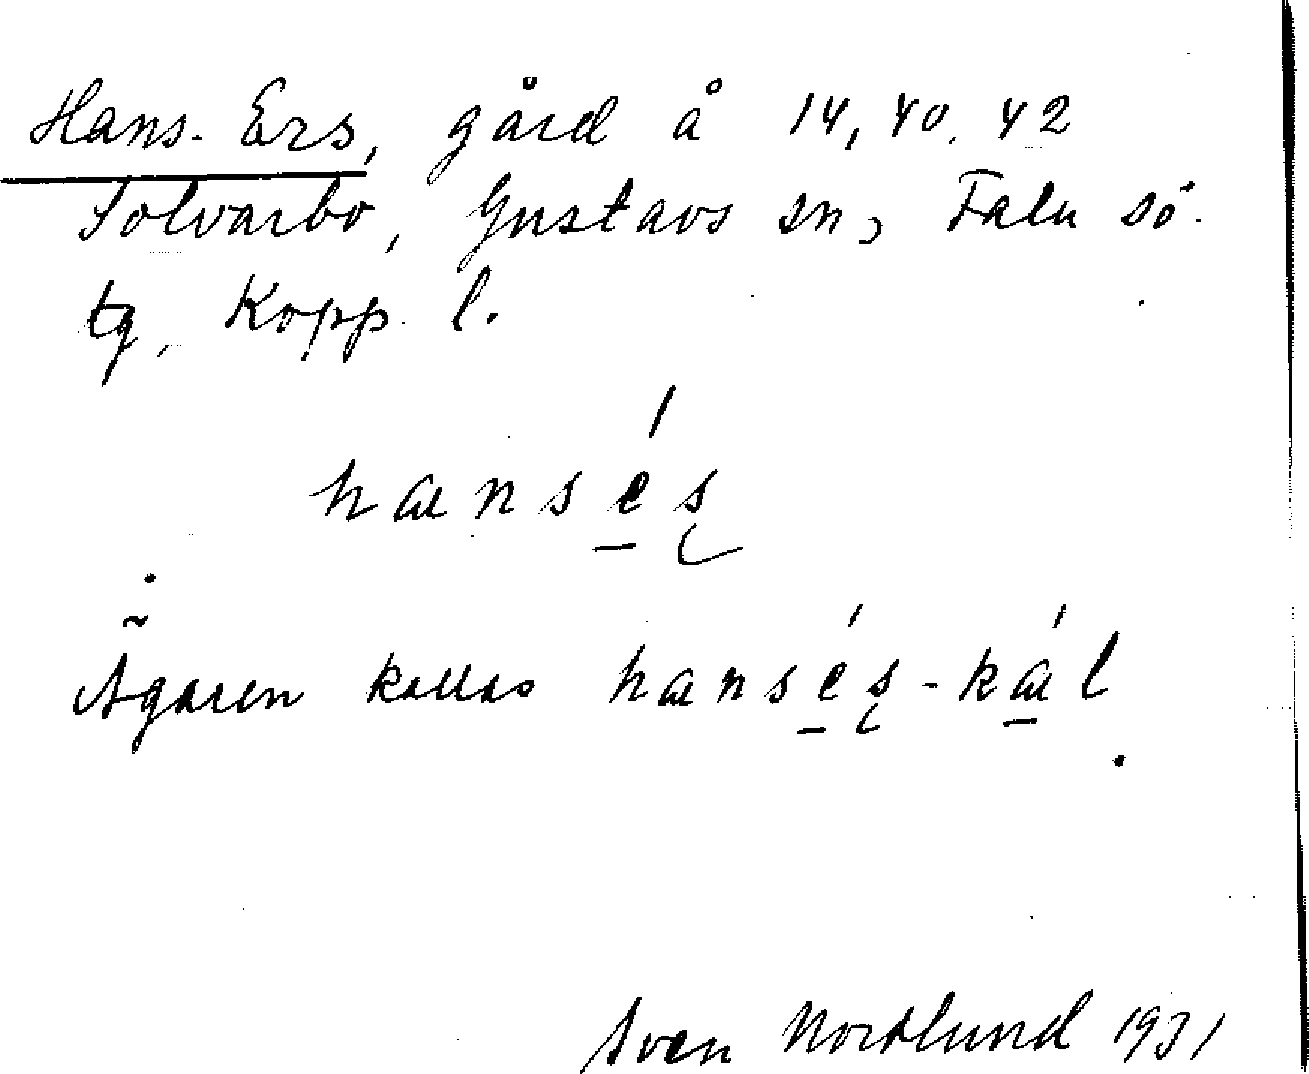 Hans-Ers, gård å 14, 40, 42
Solvarbo, Gustavs sn, Falu sö.
tg, Kopp. l.
hansés
Ägaren kallas hansés-kál
Sven Nordlund 1931